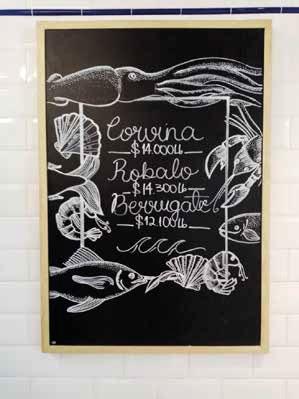 Corvina
$14.000Lb
Robalo
$14.300Lb
Berrugate
$12.100Lb